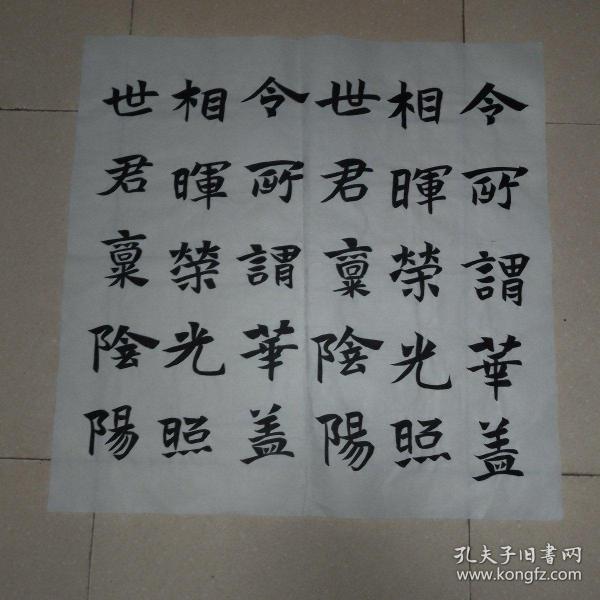 令所謂華盖
相暉榮光照
世君稟陰陽
令所謂華盖
相暉榮光照
世君稟陰陽
孔夫子旧書网
www.kongfz.com